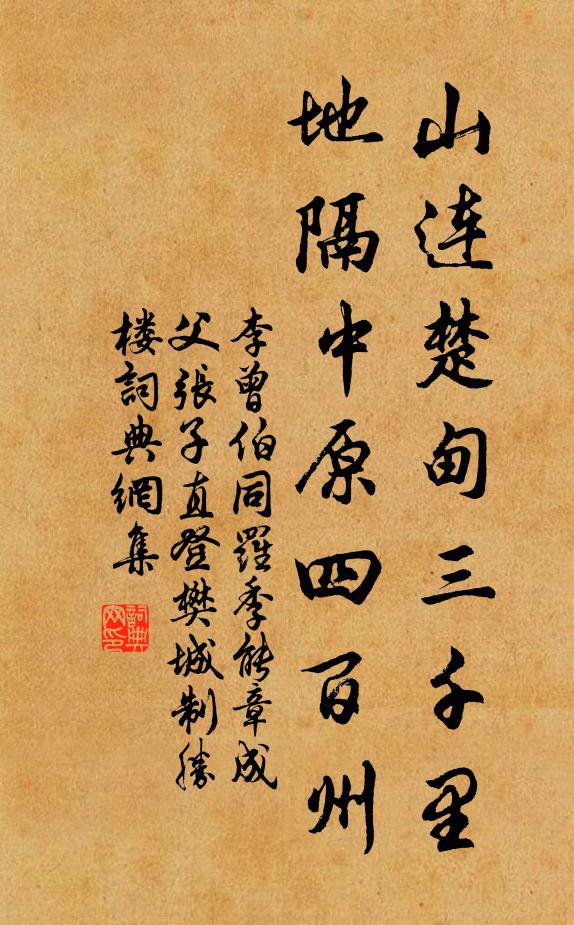 山连楚甸三千里
地隔中原四百州
李曾伯同羅季能章成
父張子直登樊城制勝
楼詞典網集
詞典
网印